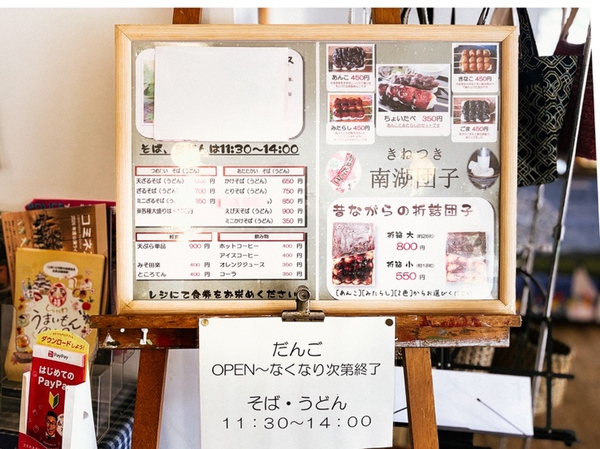 そば、うどんは11:30〜14:00
つめたい そば(うどん)
天ざるそば(うどん)
ざるそば(うどん) 700円
ミニざるそば(う 350円
あたたかい そば(うどん)
かけそば(うどん) 650円
とりそば(うどん) 750円
850円
えび天そば(うどん) 900円
ミニかけそば(うどん) 350円
軽食
天ぷら単品 900円
みそ田楽 400円
ところてん 400円
飲み物
ホットコーヒー 400円
アイスコーヒー 400円
オレンジジュース 350円
コーラ 350円
レジにて食券をお求めください
あんこ 450円
きなこ 450円
ちょいたべ 350円
みたらし 450円
ごま 450円
きねつき
南湖団子
昔ながらの折詰団子
折詰 大
800円
折詰 小
550円
[あんこ][みたらし][2色]からお選びください
だんご
OPEN〜なくなり次第終了
そば・うどん
11:30〜14:00
コミネ
うまいもん
ダウンロードしよう!
PayPay
はじめての
PayPay